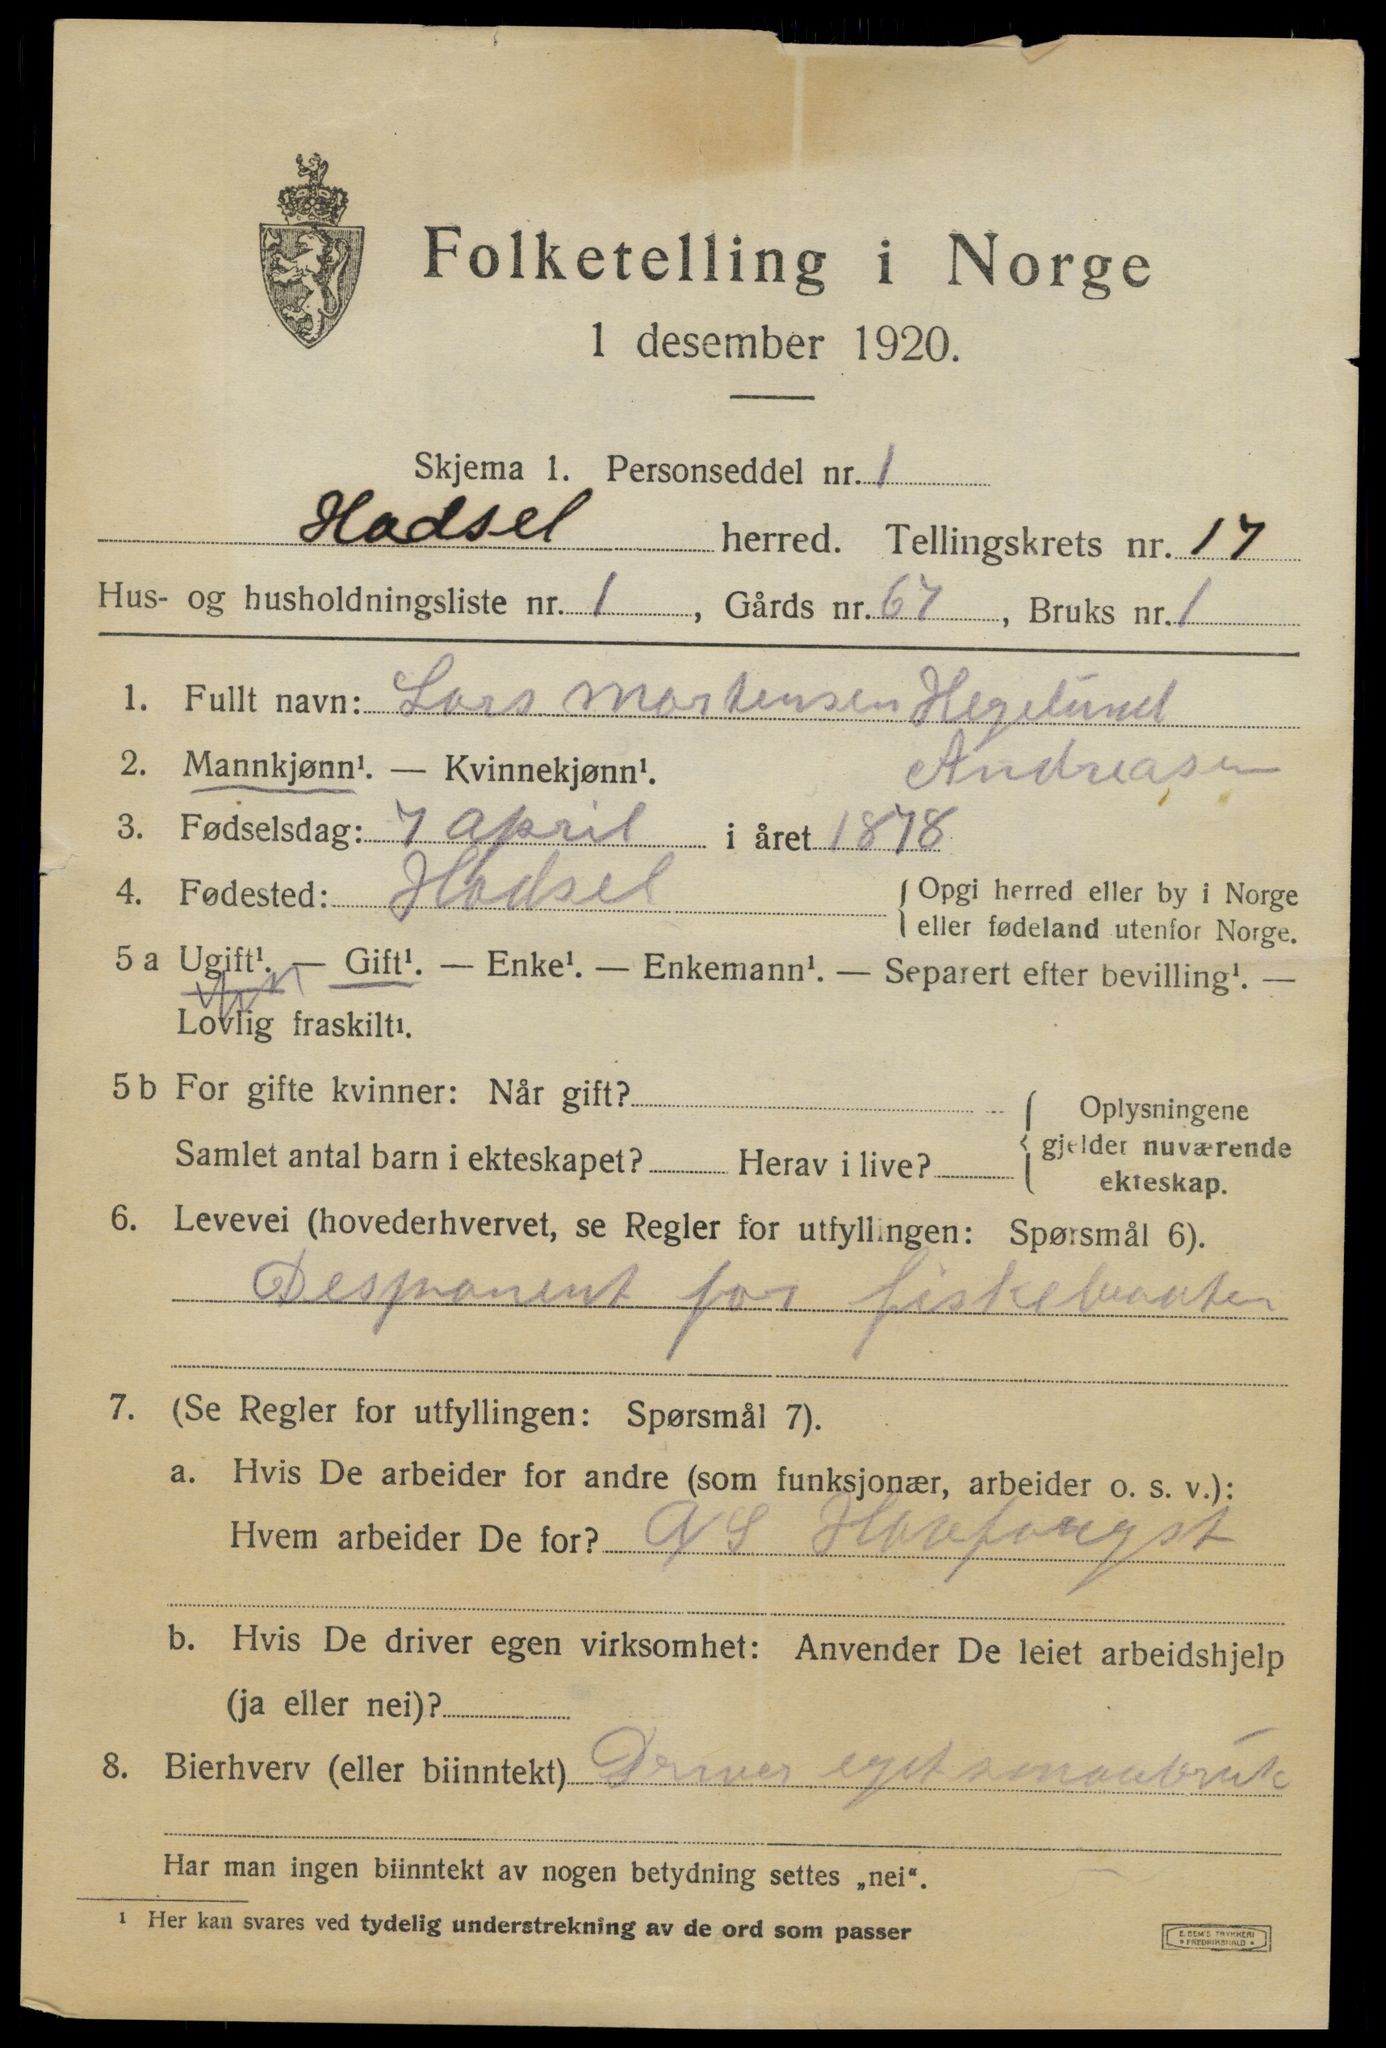 Folketelling i Norge
1 desember 1920.
Skjema 1. Personseddel nr. 1
Hadsel herred. Tellingskrets nr. 17
Hus- og husholdningsliste nr. 1, Gårds nr. 67, Bruks nr. 1
1. Fullt navn: Lars Mortensen Hegelund
Andreasen
2. Mannkjønn¹. — Kvinnekjønn¹.
3. Fødselsdag: 7 april i året 1878
4. Fødested: Hadsel { Opgi herred eller by i Norge
eller fødeland utenfor Norge.
5 a Ugift¹. — Gift¹. — Enke¹. — Enkemann¹. — Separert efter bevilling¹. —
Lovlig fraskilt¹.
5 b For gifte kvinner: Når gift? { Oplysningene
gjelder nuværende
Samlet antal barn i ekteskapet? Herav i live?
ekteskap.
6. Levevei (hovederhvervet, se Regler for utfyllingen: Spørsmål 6).
Desponent for fiskebaaten
7. (Se Regler for utfyllingen: Spørsmål 7).
a. Hvis De arbeider for andre (som funksjonær, arbeider o. s. v.):
Hvem arbeider De for? A/S Havfangst
b. Hvis De driver egen virksomhet: Anvender De leiet arbeidshjelp
(ja eller nei)?
8. Bierhverv (eller biinntekt) Driver eget smaabruk
Har man ingen biinntekt av nogen betydning settes „nei“.
¹ Her kan svares ved tydelig understrekning av de ord som passer
E. SEM'S TRYKKERI
* FREDRIKSHALD *